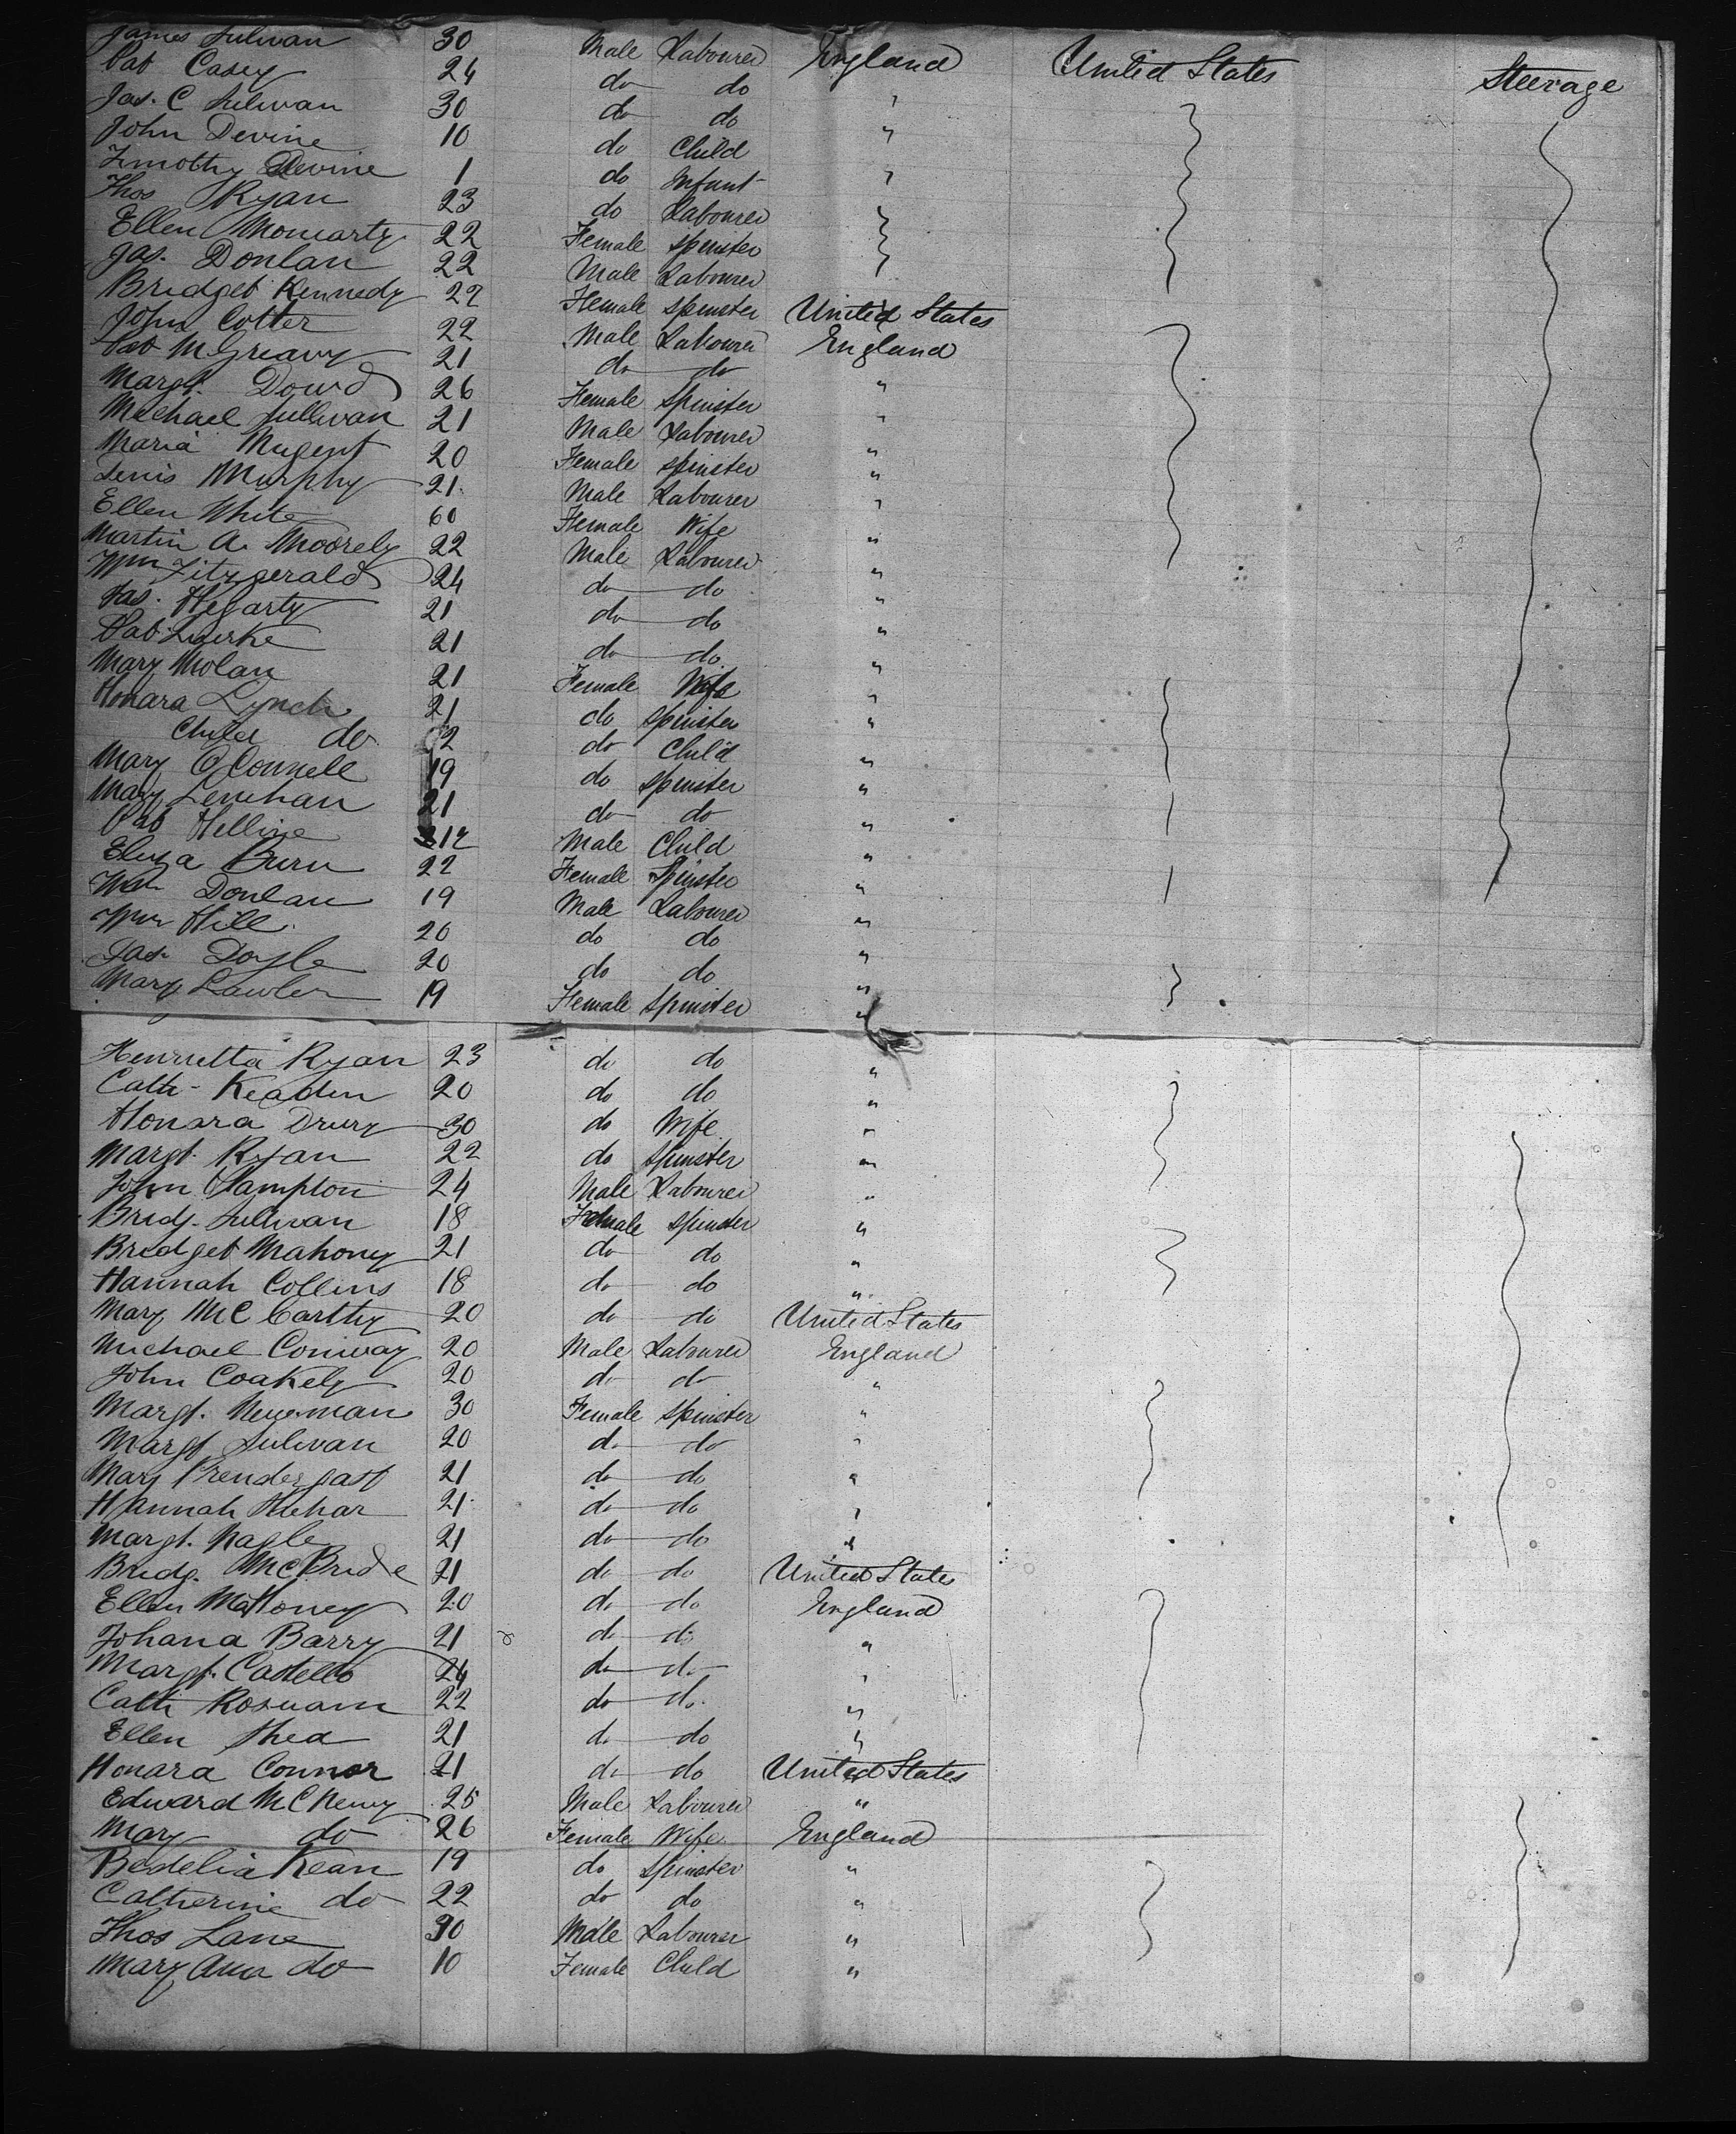 James Sulivan 30 Male Labourer England United States Steerage
Pat Casey 24 do do "
Jas. C Sulivan 30 do do "
John Devine 10 do Child "
Timothy Devine 1 do Infant "
Thos Ryan 23 do Labourer
Ellen Moriarty 22 Female Spinster
Jas. Donlan 22 Male Labourer
Bridget Kennedy 22 Female Spinster United States
John Cotter 22 Male Labourer England
Pat McGreavy 21 do do "
Margt. Dowd 26 Female Spinster "
Michael Sullivan 21 Male Labourer "
Maria Nugent 20 Female Spinster "
Denis Murphy 21 Male Labourer "
Ellen White 60 Female Wife "
Martin A. 22 Male Labourer "
Wm Fitzgerald 24 do do "
Jas. Hegarty 21 do do "
Pat 21 do do "
Mary Nolan 21 Female Wife "
Honara Lynch 21 do Spinster "
Child do 2 do Child "
Mary O'Connell 19 do Spinster "
Mary Lenehan 21 do do "
Pat 12 Male Child "
Eliza Burn 22 Female Spinster "
Donlan 19 Male Labourer "
Wm Hill 20 do do "
Jas. Doyle 20 do do "
Mary Lawler 19 Female Spinster "
Henrietta Ryan 23 do do "
Cath Keaden 20 do do "
Honara Drury 30 do Wife "
Margt. Ryan 22 do Spinster "
John Hampton 24 Male Labourer "
Bridg. Sulivan 18 Female Spinster "
Bridget Mahony 21 do do "
Hannah Collins 18 do do "
Mary McCarthy 20 do do United States
Michael Conway 20 Male Labourer England
John Coakely 20 do do "
Margt. Newman 30 Female Spinster "
Margt Sulivan 20 do do "
Mary Prendergast 21 do do "
Hannah 21 do do "
Margt. Nagle 21 do do "
Bridg. McBride 21 do do United States
Ellen Mahoney 20 do do England
Johana Barry 21 do do "
Margt. Castello 24 do do "
Cath 22 do do "
Ellen Shea 21 do do "
Honara Connor 21 do do United States
Edward 25 Male Labourer "
Mary do 26 Female Wife England
Bedelia Kean 19 do Spinster "
Catherine do 22 do do "
Thos Lane 30 Male Labourer "
Mary Ann do 10 Female Child "